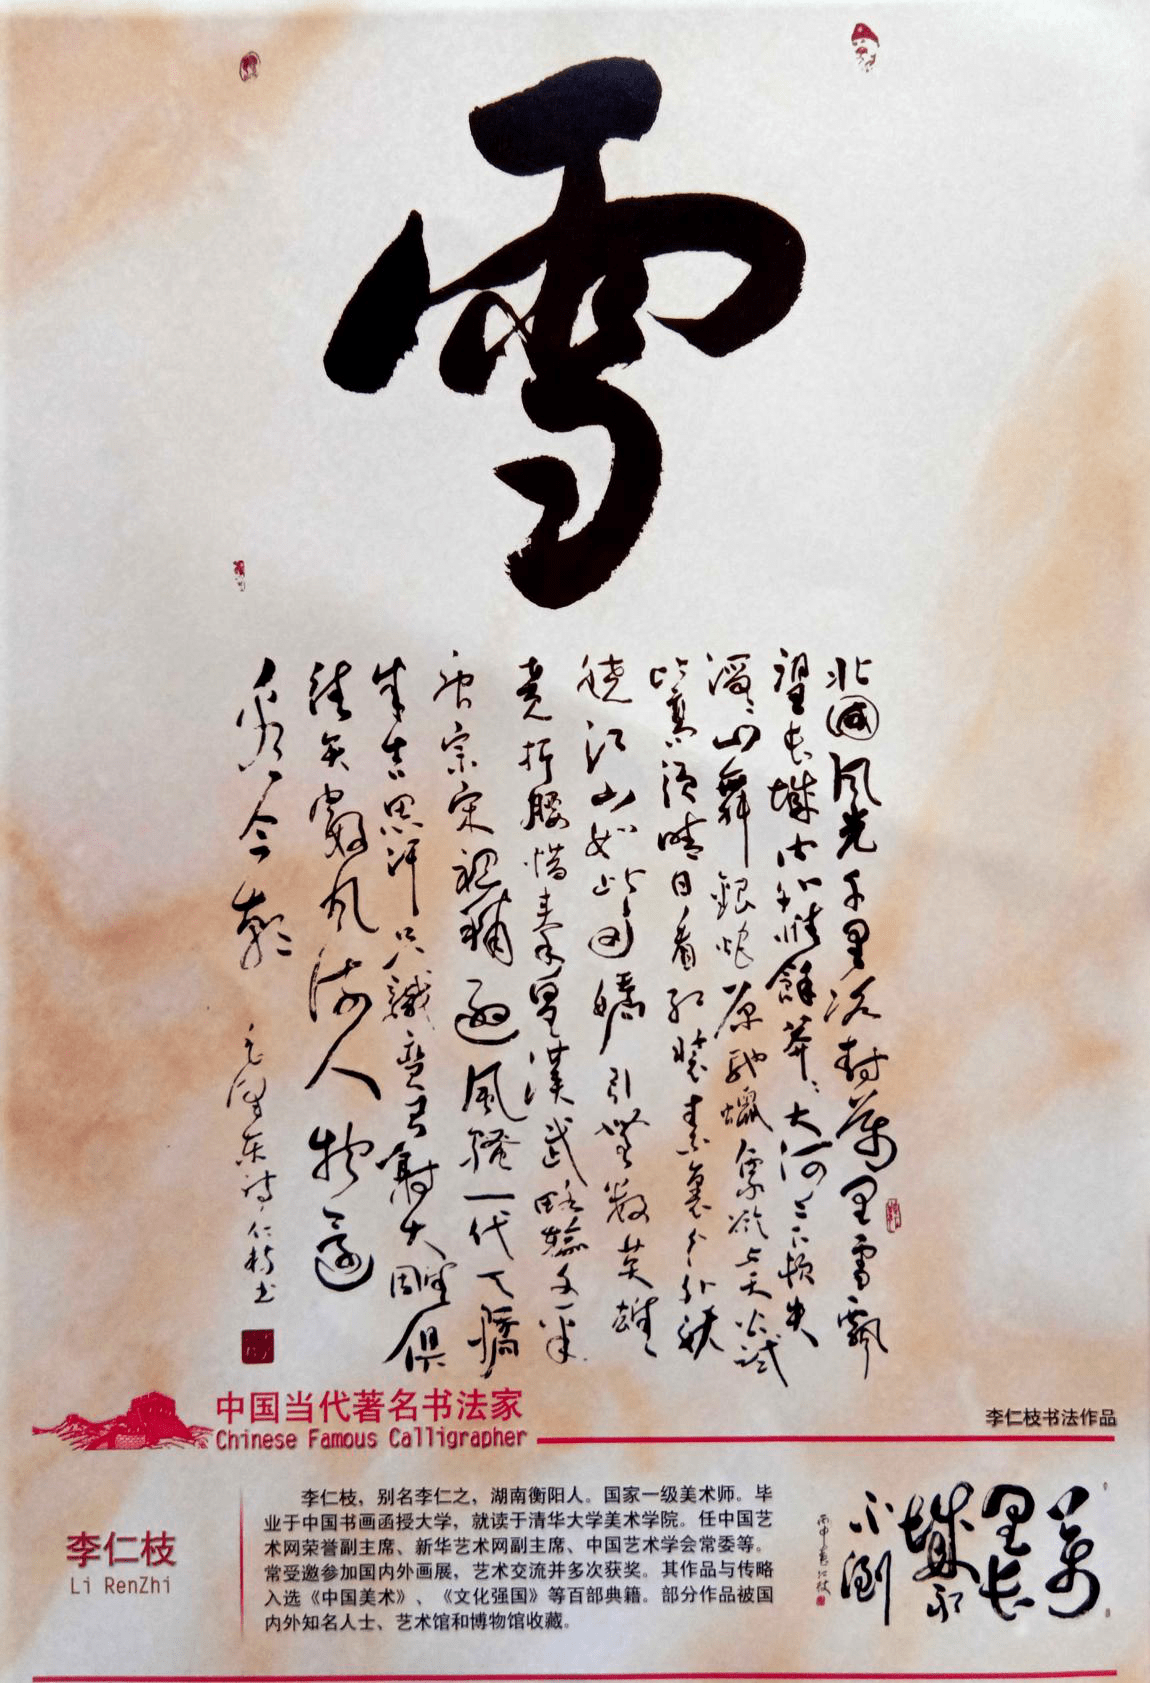 雪
北國风光千里冰封萬里雪飄
望長城内外惟餘莽莽大河上下頓失
滔滔山舞銀蛇原馳蠟象欲与天公試
比高須晴日看红裝素裹分外妖
嬈江山如此多嬌引無數英雄
竞折腰惜秦皇漢武略輸文采
唐宗宋祖稍遜風騷一代天驕
成吉思汗只識彎弓射大雕俱
往矣數風流人物還
看今朝
毛澤东詩仁枝书
中国当代著名书法家
Chinese Famous Calligrapher
李仁枝书法作品
李仁枝
Li RenZhi
李仁枝，别名李仁之，湖南衡阳人。国家一级美术师。毕
业于中国书画函授大学，就读于清华大学美术学院。任中国艺
术网荣誉副主席、新华艺术网副主席、中国艺术学会常委等。
常受邀参加国内外画展，艺术交流并多次获奖。其作品与传略
入选《中国美术》、《文化强国》等百部典籍。部分作品被国
内外知名人士、艺术馆和博物馆收藏。
萬
里长
城永
不倒